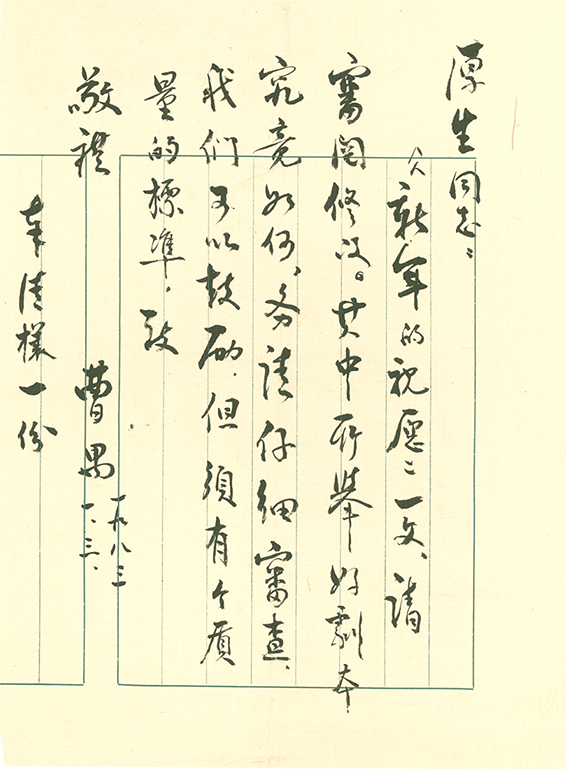 厚生同志：
“新年的祝愿”一文、请
審閱修改。其中所举好劇本
究竟如何、务請仔细審查、
我们可以鼓励．但须有个质
量的標準．致
敬禮
曹禺
一九八三
一、三．
清樣一份